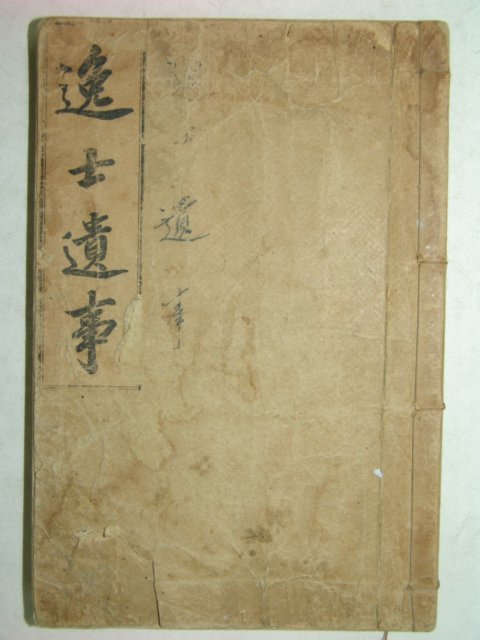 逸士遺事
逸士遺事